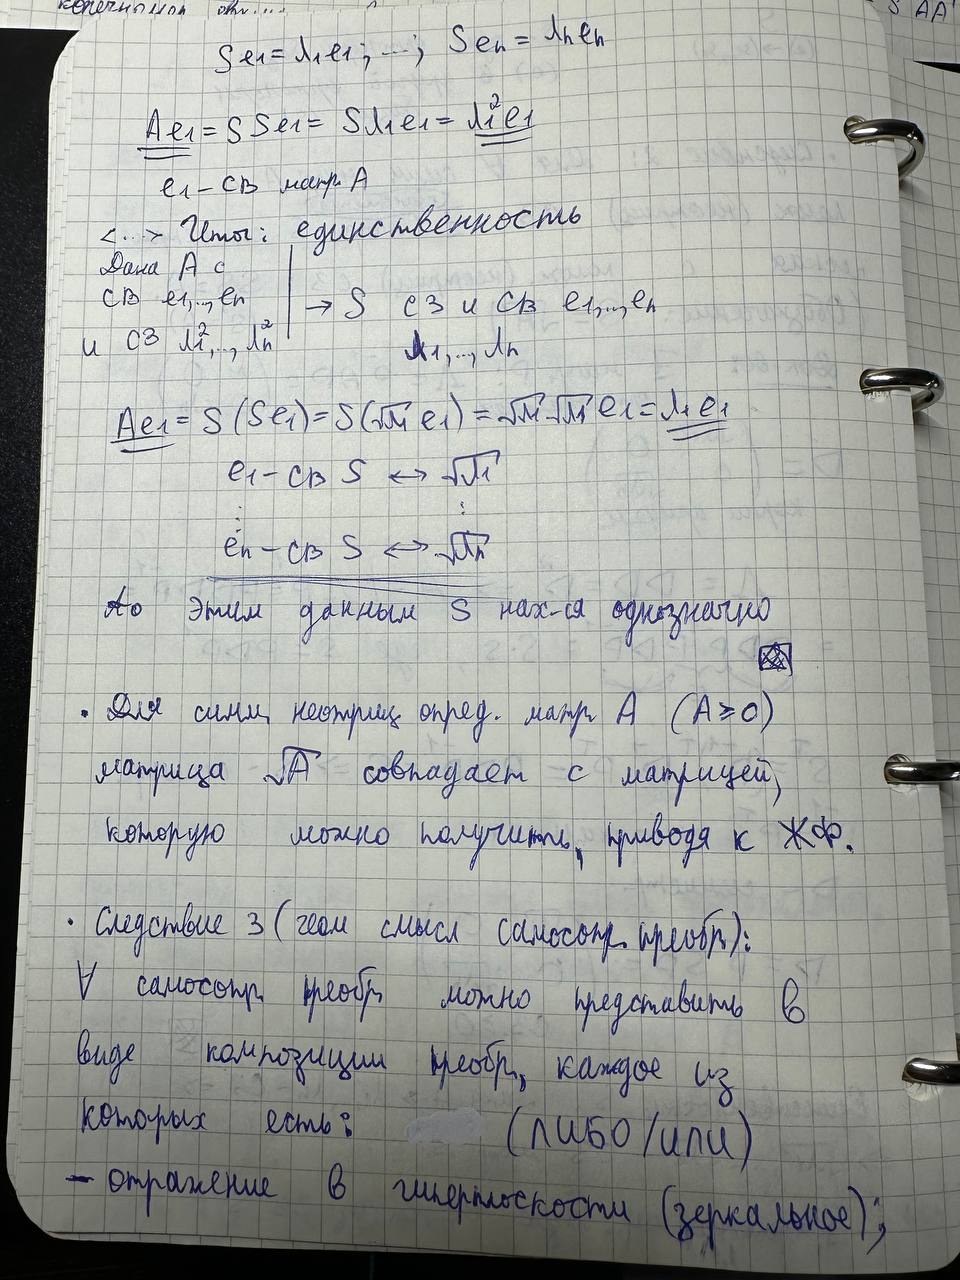 конечном
S AA
Se₁ = λ₁e₁; ...; Seₙ = λₙeₙ
Ae₁ = S Se₁ = Sλ₁e₁ = λ₁²e₁
e₁ – СВ матр A
<...> Итог: единственность
Дана A с
СВ e₁,..,eₙ → S СЗ и СВ e₁,..,eₙ
и СЗ λ₁²,..,λₙ² λ₁,..,λₙ
Ae₁ = S(Se₁) = S(√λ₁ e₁) = √λ₁ √λ₁ e₁ = λ₁e₁
e₁ – СВ S ↔ √λ₁
⋮ ⋮
eₙ – СВ S ↔ √λₙ
По этим данным S нах-ся однозначно
• Для симм, неотриц опред. матр A (A ⩾ 0)
матрица √A совпадает с матрицей,
которую можно получить, приводя к ЖФ.
• Следствие 3 (геом смысл самосопр. преобр):
∀ самосопр преобр можно представить в
виде композиции преобр, каждое из
которых есть: (ЛИБО/ИЛИ)
– отражение в гиперплоскости (зеркальное);